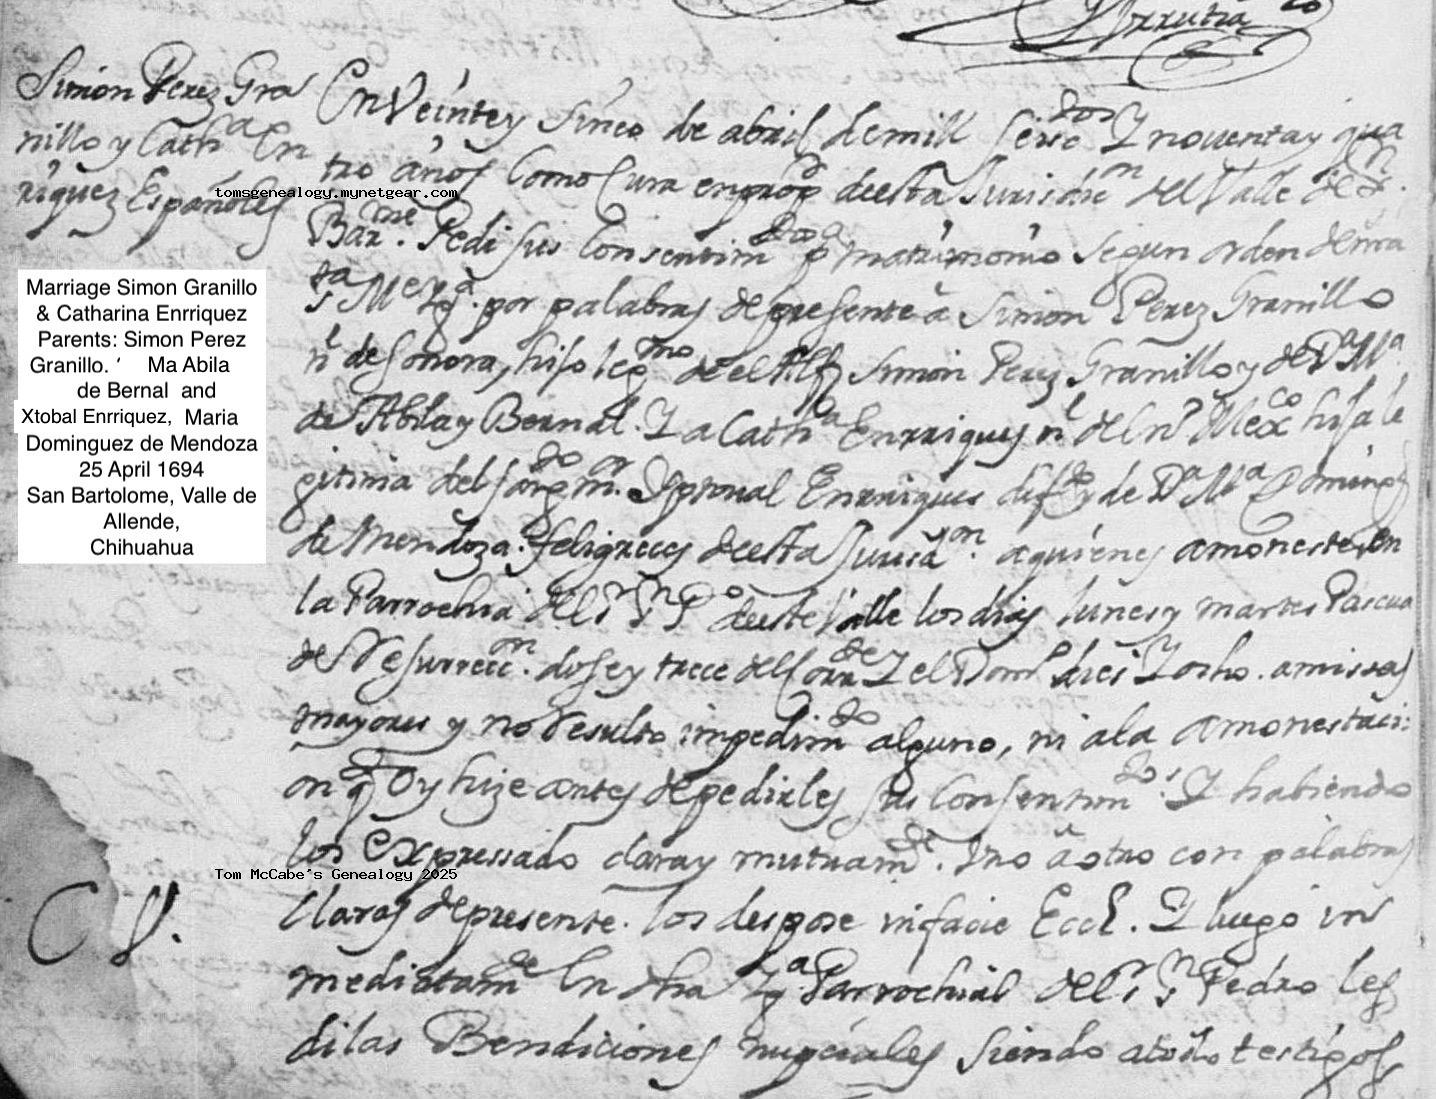 Urrutia
Simon Perez Gra
nillo y Cath.a En
riquez Españoles
En Veinte y sinco de abril de mill seisc.dos Y noventa y qua
tro años Como Cura en prop.d de esta Jurisdi.on del Valle de S.n
Bar.me Pedi sus Consentim.dos p.a matrimonio segun orden de nra
s.ta M.e Yg.a por palabras de presente à Simon Perez Granillo
n.l de sonora, hijo leg.mo de el Alf.z Simon Perez Granillo y de D.a M.a
de Abila y Bernal. Y a Cath.a Enrriques n.l del R.l Mex.co hija le
gitima del sarg.to m.or Xptoual Enrriques dif.to y de D.a M.a Doming.z
de Mendoza. feligreces de esta Jurisd.on. a quienes amoneste, en
la Parrochia del s.r S.n P.o de este Valle los dias lunes y martes Pascua
de Resurrecc.on. dose y trece del Corr.te Y el Dom.o dies Y ocho. a missas
mayores y no Resulto impedim.to alguno, ni a la amonestaci:
on q.e Oy hize antes de pedirles sus Consentim.dos. Y habiendo
los Expressado clara y mutuam.te. Vno à otro con palabras
Claras de presente. los despose in facie Eccl. Y luego in
mediatam.te En dha Yg.a Parrochial del s.r S.n Pedro les
di las Bendiciones nupciales siendo a todo testigos
C V.
tomsgenealogy.mynetgear.com
Marriage Simon Granillo
& Catharina Enrriquez
Parents: Simon Perez
Granillo. ‘ Ma Abila
de Bernal and
Xtobal Enrriquez, Maria
Dominguez de Mendoza
25 April 1694
San Bartolome, Valle de
Allende,
Chihuahua
Tom McCabe's Genealogy 2025